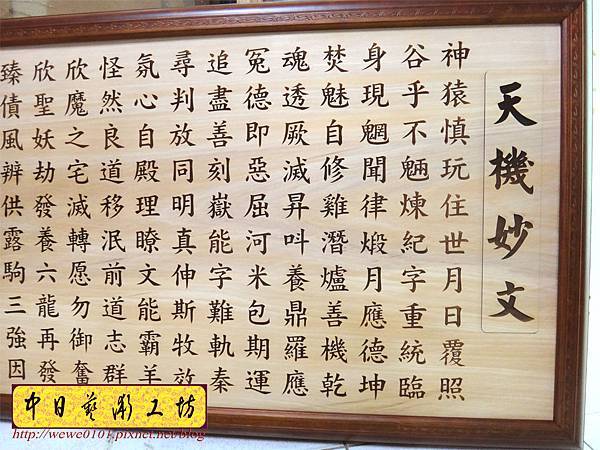 天機妙文
神猿慎玩住世月日覆照
谷乎不魎煉紀字重統臨
身現魍聞律煅月應德坤
焚魅自修雞潛爐善機乾
魂透厥滅昇叫養鼎羅應
冤德即惡屈河米包期運
追盡善刻嶽能字難軌秦
尋判放同明真伸斯牧效
氛心自殿理瞭文能霸羊
怪然良道移泯前道志群
欣魔之宅滅轉愿勿御奮
欣聖妖劫發養六龍再發
臻債風辨供露駒三強因
中日藝術工坊
http://wewe0101.pixnet.net/blog